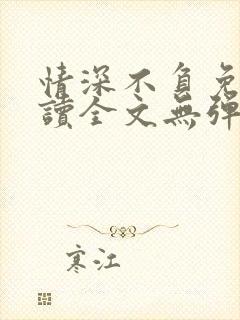 情深不負免
讀全文無彈
寒江